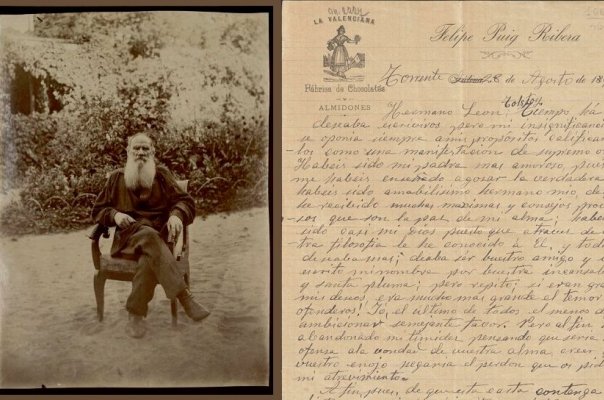 LA VALENCIANA
Fábrica de Chocolates
ALMIDONES
Felipe Puig Ribera
Torrente 28 de Agosto de 19
Hermano Leon Tolstoy: Tiempo há
deseaba escribiros pero mi insignificancia
se oponia siempre á mis propósitos calificán
los como una manifestación de supremo
Habéis sido mi padre mas amoroso, pues
me habéis enseñado a gozar la verdadera
habéis sido amabilisimo hermano mio de
he recibido muchas maximas y consejos
sos que son la paz de mi alma; habeis
sido casi mi Dios puesto que atraves de
tra filosofia le he conocido á El, y todo
deseaba mas; deseaba ser vuestro amigo y
escrito mi nombre por vuestra incansable
y santa pluma; pero repito; si eran grandes
mi deseos, era mucho mas grande el temor
ofenderos! Yo, el último de todos el menos
ambicionar semejante favor. Pero al fin
abandonado mi timidez pensando que seria
ofensa á la bondad de vuestra alma creer
vuestro enojo negaria el perdon que os pido
mi atrevimiento.
A fin, pues, de que esta carta contenga